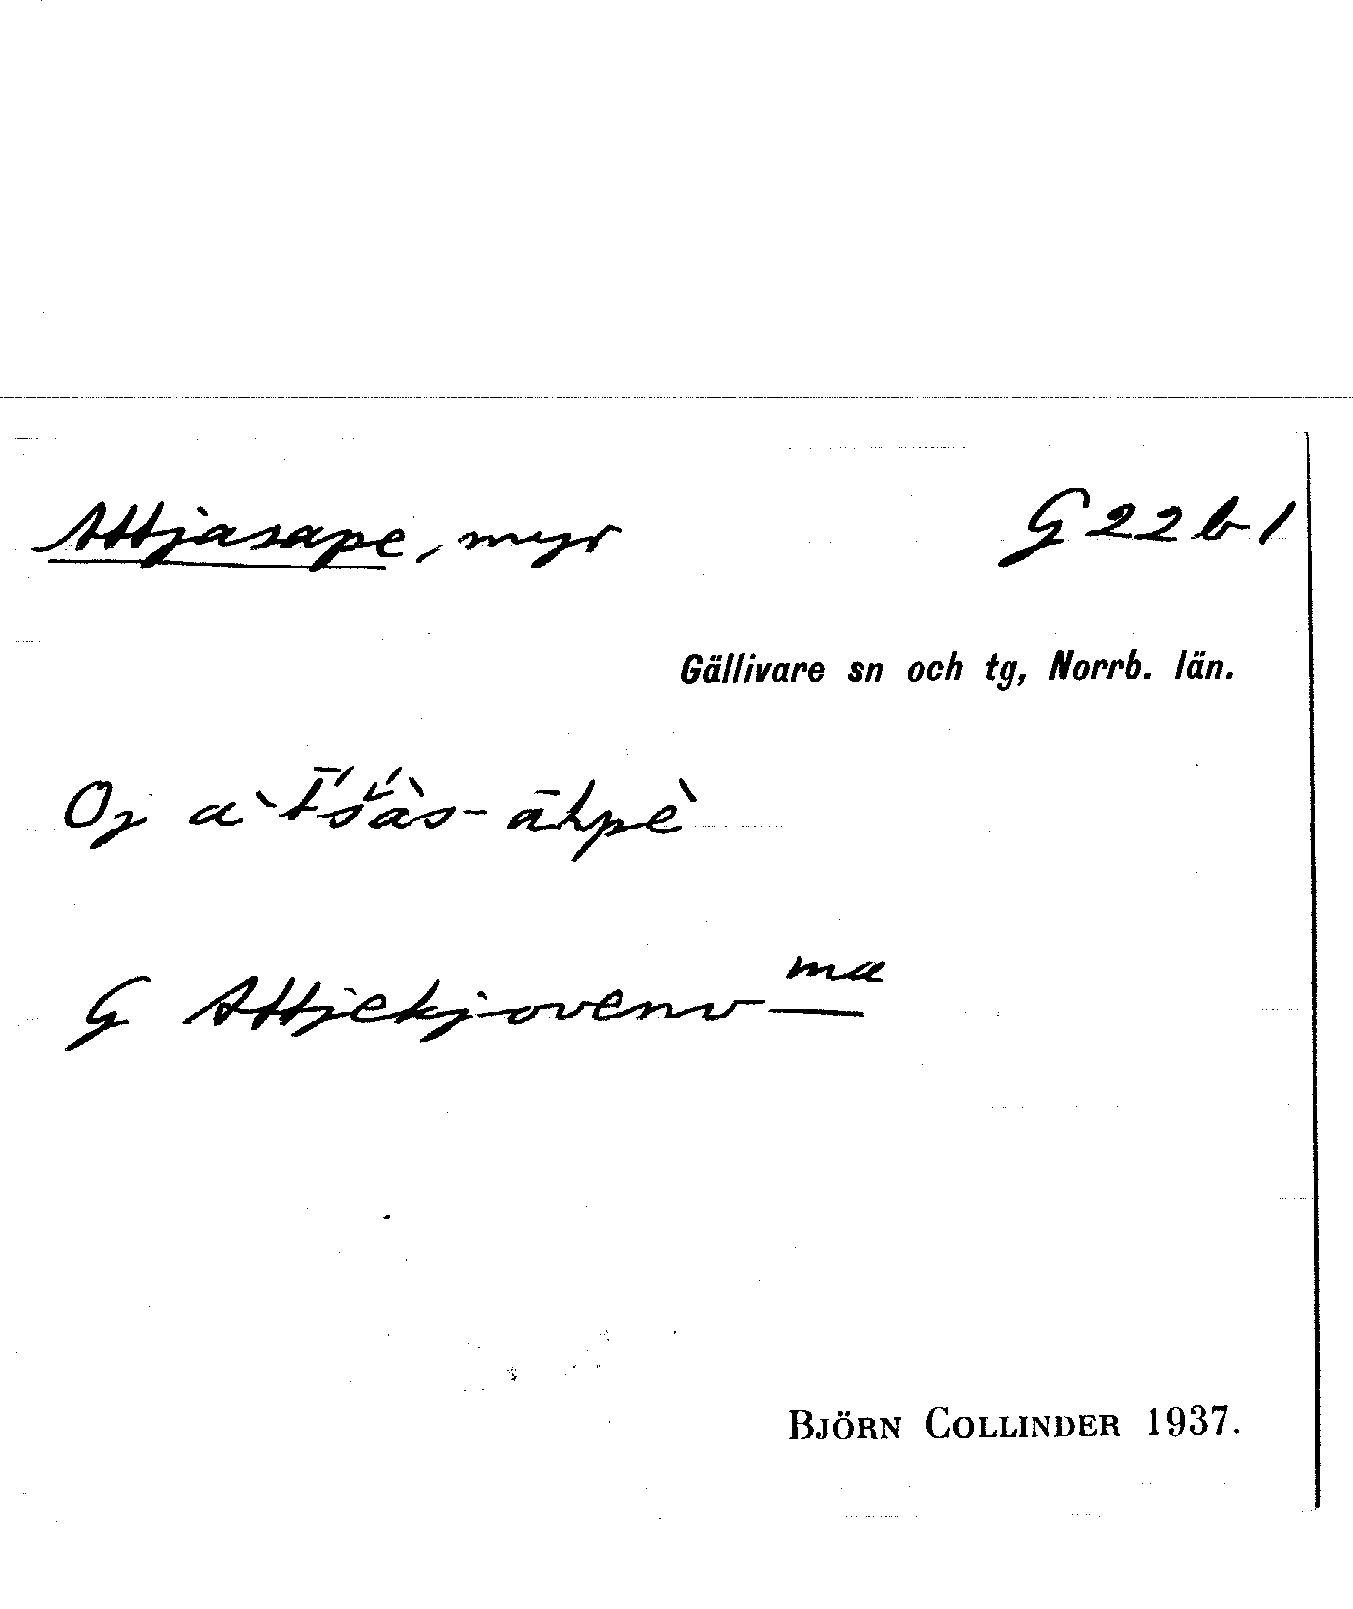 Attjasape, myr G 22 b 1
Gällivare sn och tg, Norrb. län.
Oj
G Attjekjovenv — ma
BJÖRN COLLINDER 1937.